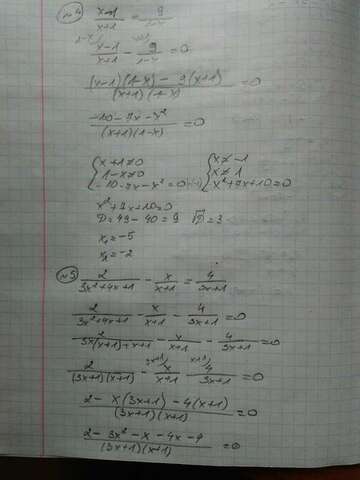 №4 (x-1)/(x+1) = 9/(1-x)
(x-1)/(x+1) - 9/(1-x) = 0
((x-1)(1-x) - 9(x+1))/((x+1)(1-x)) = 0
(-10-7x-x²)/((x+1)(1-x)) = 0
{x+1≠0 {x≠-1
{1-x≠0 {x≠1
{-10-7x-x²=0 {x²+7x+10=0
x²+7x+10=0
D=49-40=9 √D=3
x₁=-5
x₂=-2
№5 2/(3x²+4x+1) - x/(x+1) = 4/(3x+1)
2/(3x²+4x+1) - x/(x+1) - 4/(3x+1) = 0
2/(3x(x+1)+x+1) - x/(x+1) - 4/(3x+1) = 0
2/((3x+1)(x+1)) - x/(x+1) - 4/(3x+1) = 0
(2-x(3x+1)-4(x+1))/((3x+1)(x+1)) = 0
(2-3x²-x-4x-4)/((3x+1)(x+1)) = 0